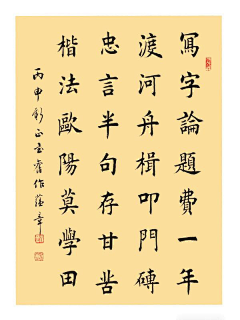 寫字論題費一年
渡河舟楫叩門磚
忠言半句存甘苦
楷法歐陽莫學田
丙申